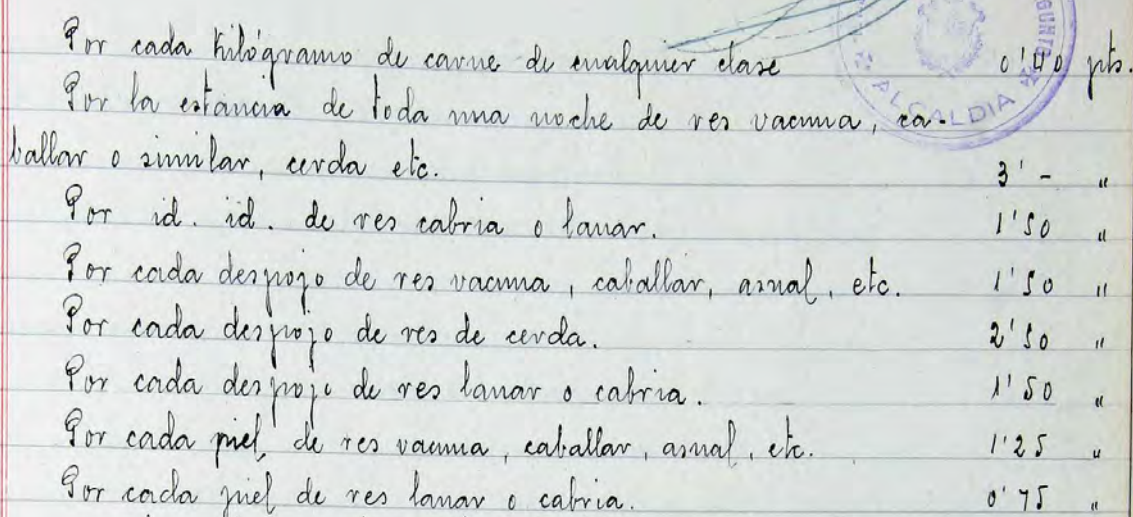 Por cada Kilógramo de carne de cualquier clase 0'40 pts.
Por la estancia de toda una noche de res vacuna, ca-
ballar o similar, cerda etc. 3'- "
Por id. id. de res cabria o lanar. 1'50 "
Por cada despojo de res vacuna, caballar, asnal, etc. 1'50 "
Por cada despojo de res de cerda. 2'50 "
Por cada despojo de res lanar o cabria. 1'50 "
Por cada piel, de res vacuna, caballar, asnal, etc. 1'25 "
Por cada piel de res lanar o cabria. 0'75 "
ALCALDIA